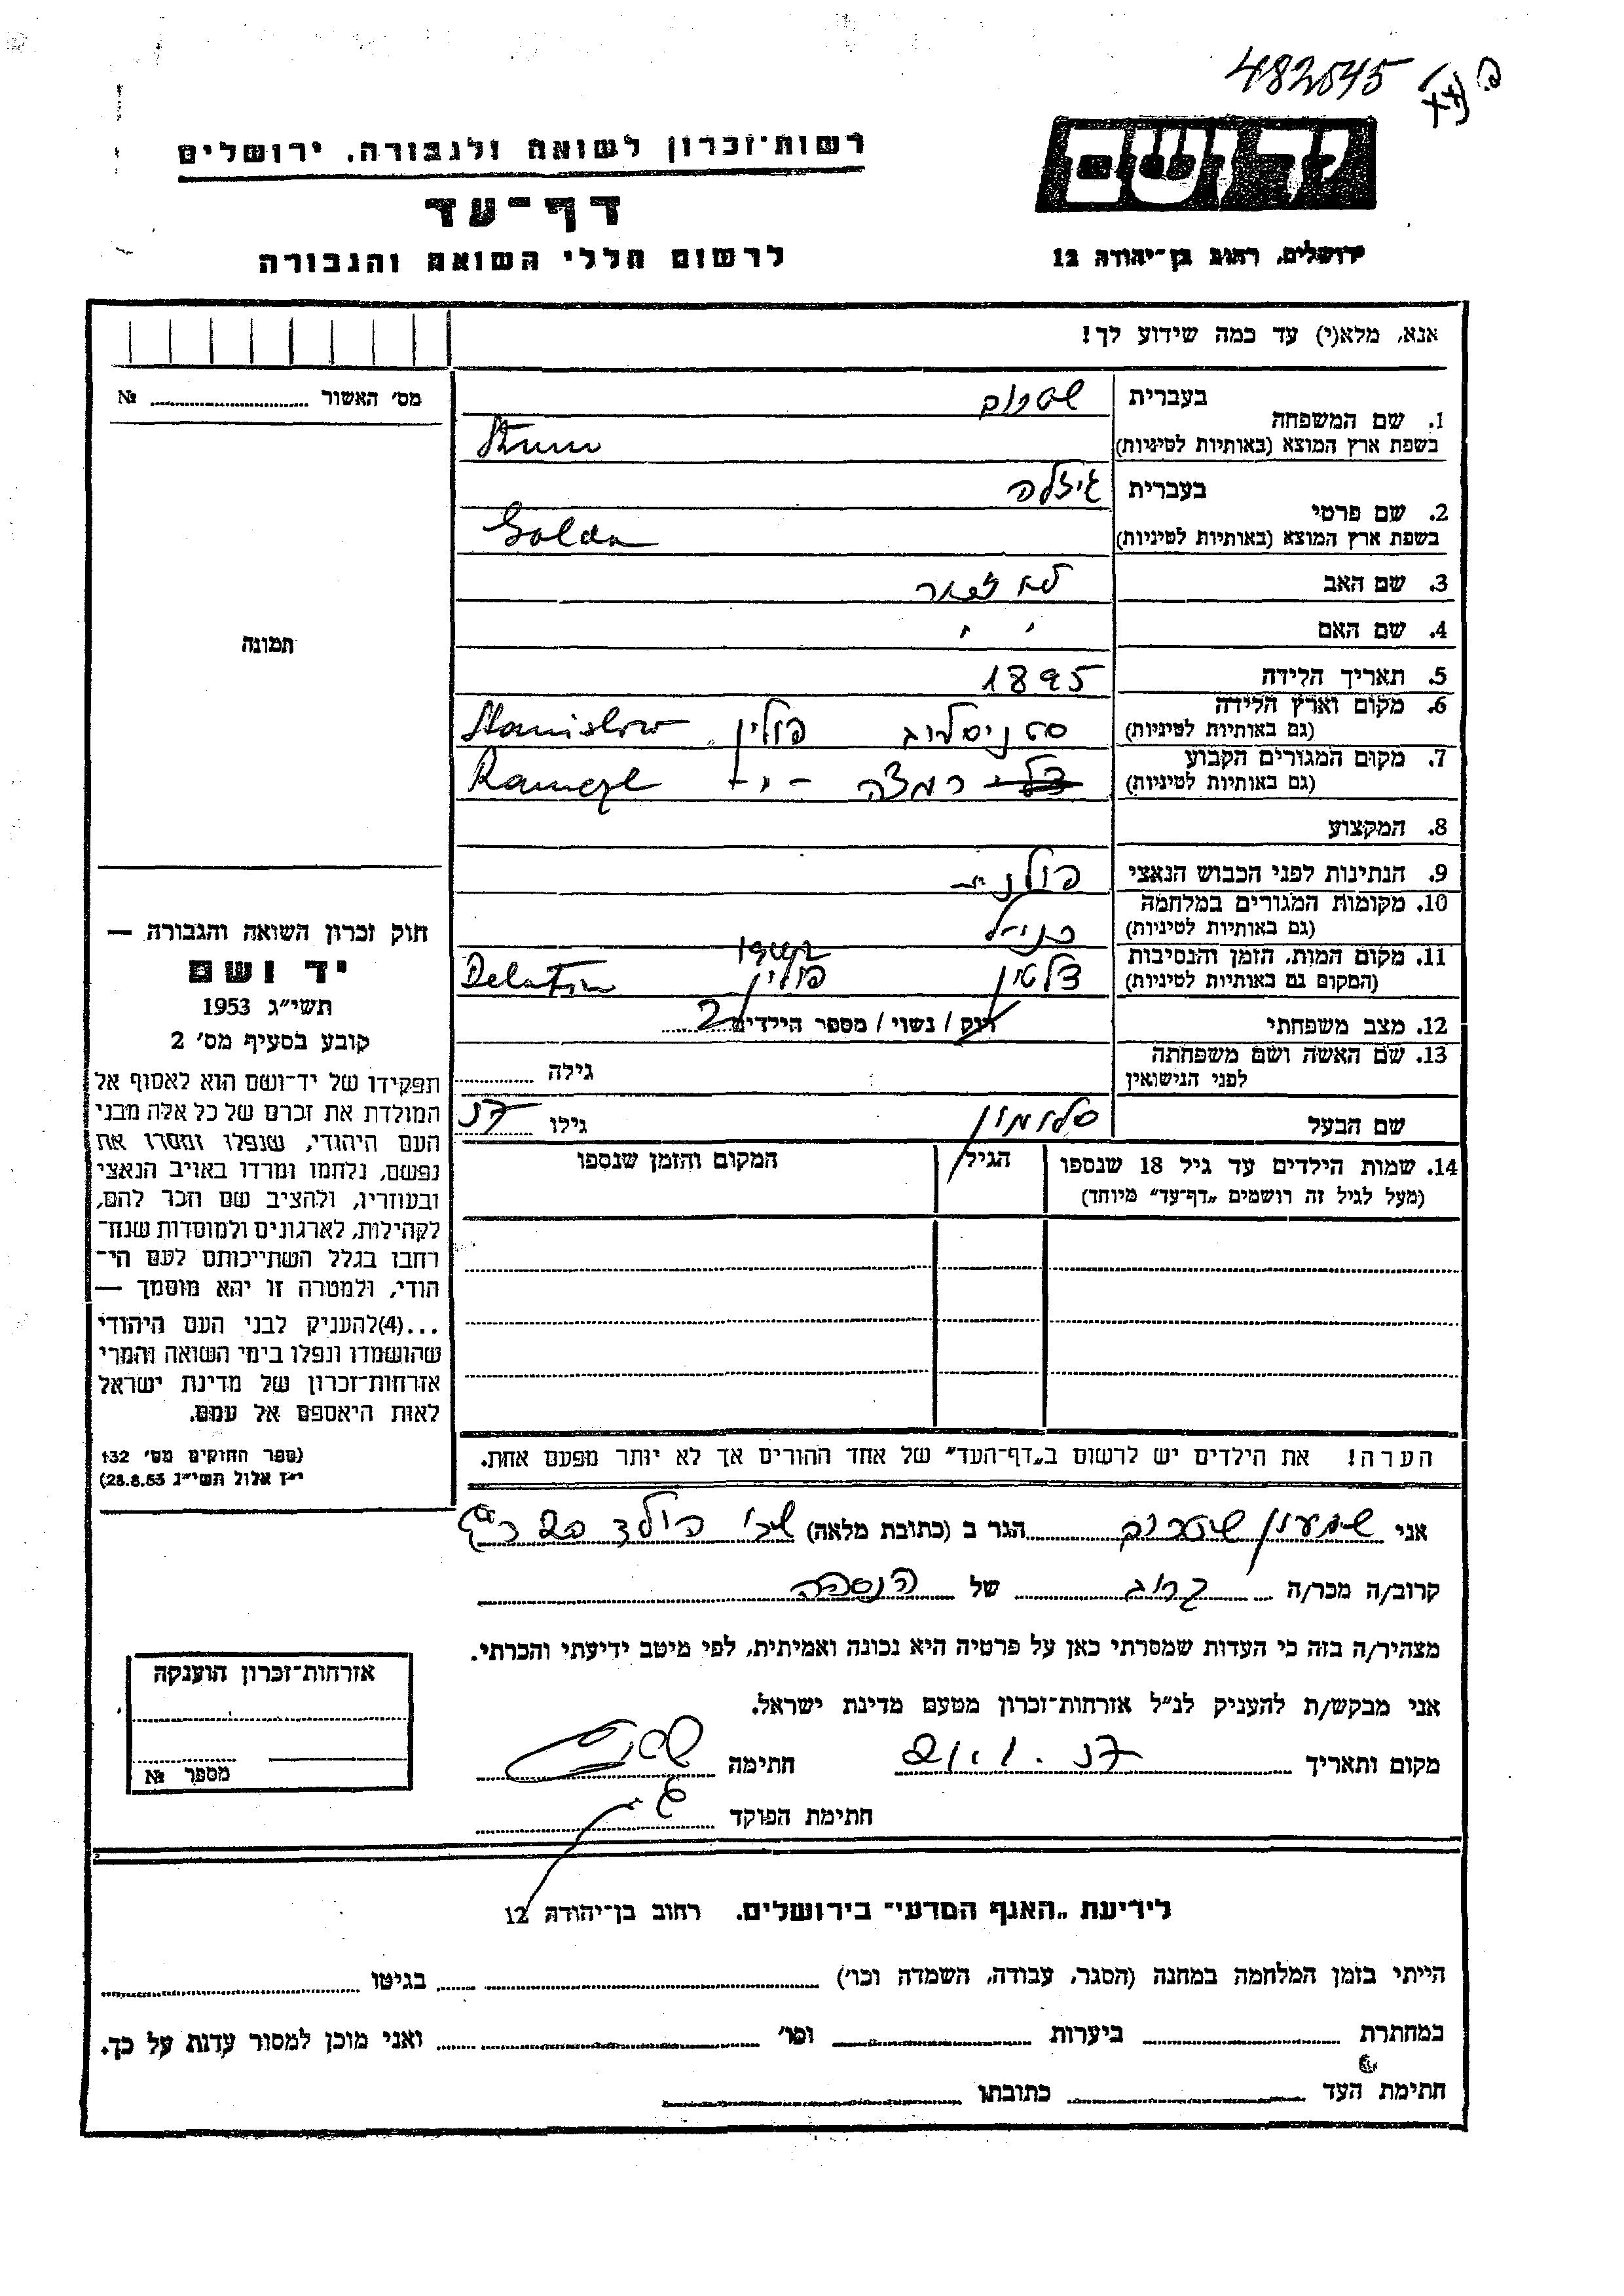 482545
רשות־זכרון לשואה ולגבורה, ירושלים
יד ושם
דף־עד
לרשום חללי השואה והגבורה
ירושלים, רחוב בן־יהודה 12
אנא, מלא(י) עד כמה שידוע לך!
מס׳ האשור № 
תמונה
בעברית
1. שם המשפחה
בשפת ארץ המוצא (באותיות לטיניות)
בעברית
2. שם פרטי
בשפת ארץ המוצא (באותיות לטיניות) Golda
3. שם האב
4. שם האם
5. תאריך הלידה 1895
6. מקום וארץ הלידה
(גם באותיות לטיניות) סטניסלוב פולין Stanislow
7. מקום המגורים הקבוע
(גם באותיות לטיניות)
8. המקצוע
9. הנתינות לפני הכבוש הנאצי
10. מקומות המגורים במלחמה
(גם באותיות לטיניות) כנ״ל
11. מקום המות, הזמן והנסיבות
(המקום גם באותיות לטיניות) פולין
12. מצב משפחתי רוק / נשוי / מספר הילדים 2
13. שם האשה ושם משפחתה
לפני הנישואין גילה
שם הבעל סלומון גילו
14. שמות הילדים עד גיל 18 שנספו הגיל המקום והזמן שנספו
(מעל לגיל זה רושמים „דף־עד״ מיוחד)
הערה! את הילדים יש לרשום ב„דף־העד״ של אחד ההורים אך לא יותר מפעם אחת.
חוק זכרון השואה והגבורה —
יד ושם
תשי״ג 1953
קובע בסעיף מס׳ 2
תפקידו של יד־ושם הוא לאסוף אל
המולדת את זכרם של כל אלה מבני
העם היהודי, שנפלו ומסרו את
נפשם, נלחמו ומרדו באויב הנאצי
ובעוזריו, ולהציב שם וזכר להם,
לקהילות, לארגונים ולמוסדות שנח־
רחבו בגלל השתייכותם לעם הי־
הודי, ולמטרה זו יהא מוסמך —
...(4)להעניק לבני העם היהודי
שהושמדו ונפלו בימי השואה והמרי
אזרחות־זכרון של מדינת ישראל
לאות היאספם אל עמם.
(ספר החוקים מס׳ 132
י״ז אלול תשי״ג 28.8.53)
אני שמעון הגר ב (כתובת מלאה)
קרוב/ה מכר/ה קרוב של הנספה
מצהיר/ה בזה כי העדות שמסרתי כאן על פרטיה היא נכונה ואמיתית, לפי מיטב ידיעתי והכרתי.
אני מבקש/ת להעניק לנ״ל אזרחות־זכרון מטעם מדינת ישראל.
מקום ותאריך חתימה
חתימת הפוקד
אזרחות־זכרון הוענקה
מספר №
לידיעת „האגף המדעי״ בירושלים. רחוב בן־יהודה 12
הייתי בזמן המלחמה במחנה (הסגר, עבודה, השמדה וכו׳) בגיטו
במחתרת ביערות וכו׳ ואני מוכן למסור עדות על כך.
חתימת העד כתובתו